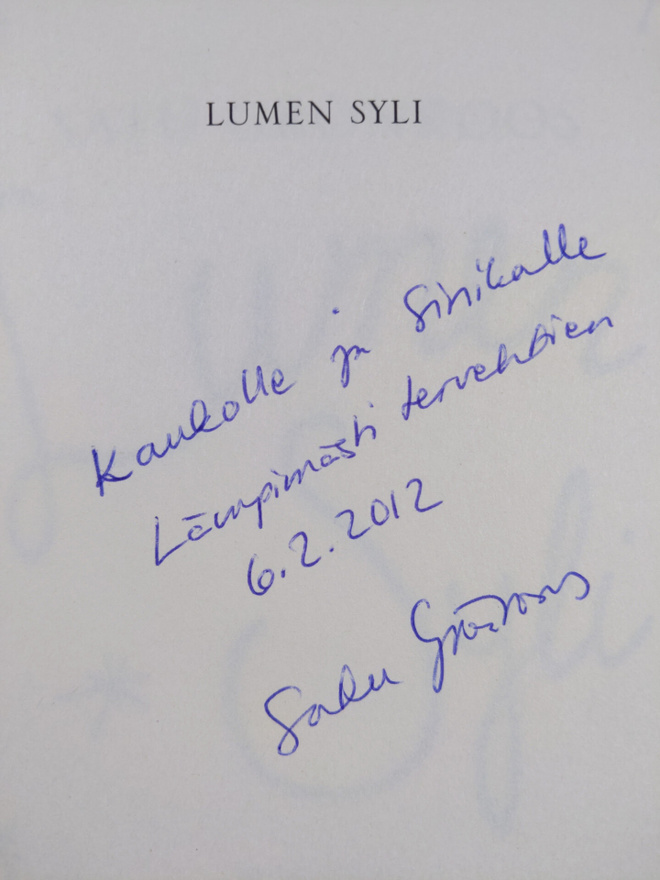 LUMEN SYLI
Kaukolle ja Sinikalle
Lämpimästi tervehtien
6.2.2012
Satu Grönroos